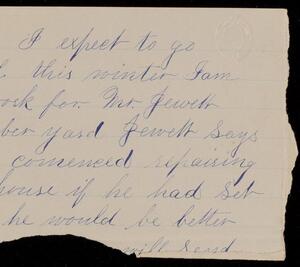 I expect to go
this winter I am
ork for Mr Jewett
ber yard Jewett Says
comenced repairing
house if he had Set
he would be better
will Send